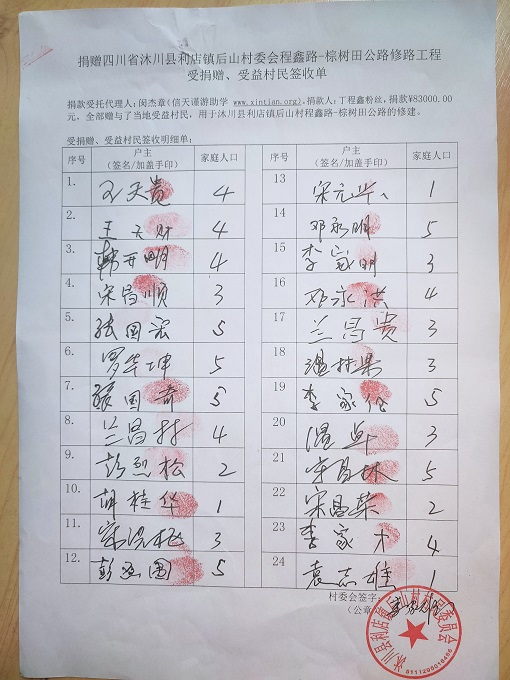 捐赠四川省沐川县利店镇后山村委会程鑫路-棕树田公路修路工程
受捐赠、受益村民签收单
捐款受托代理人: 闵杰章(信天谨游助学 www.xintian.org), 捐款人: 丁程鑫粉丝, 捐款¥83000.00
元, 全部赠与了当地受益村民, 用于沐川县利店镇后山村程鑫路-棕树田公路的修建。
受捐赠、受益村民签收明细单:
序号 户主 家庭人口 序号 户主 家庭人口
(签名/加盖手印) (签名/加盖手印)
1. 王天贵 4
2. 王天财 4
3. 韩开明 4
4. 宋昌顺 3
5. 张国宏 5
6. 罗华坤 5
7. 张国奇 5
8. 兰昌林 4
9. 彭烈松 2
10. 胡桂华 1
11. 3
12. 彭国 5
13 宋元华 1
14 邓永明 5
15 李家明 3
16 邓永洪 4
17 兰昌贵 3
18 温林果 3
19 李家伦 5
20 温华 3
21 宋昌林 5
22 宋昌荣 2
23 李家才 4
24 袁志雄 1
村委会签字:
(公章)
沐川县利店镇后山村村民委员会